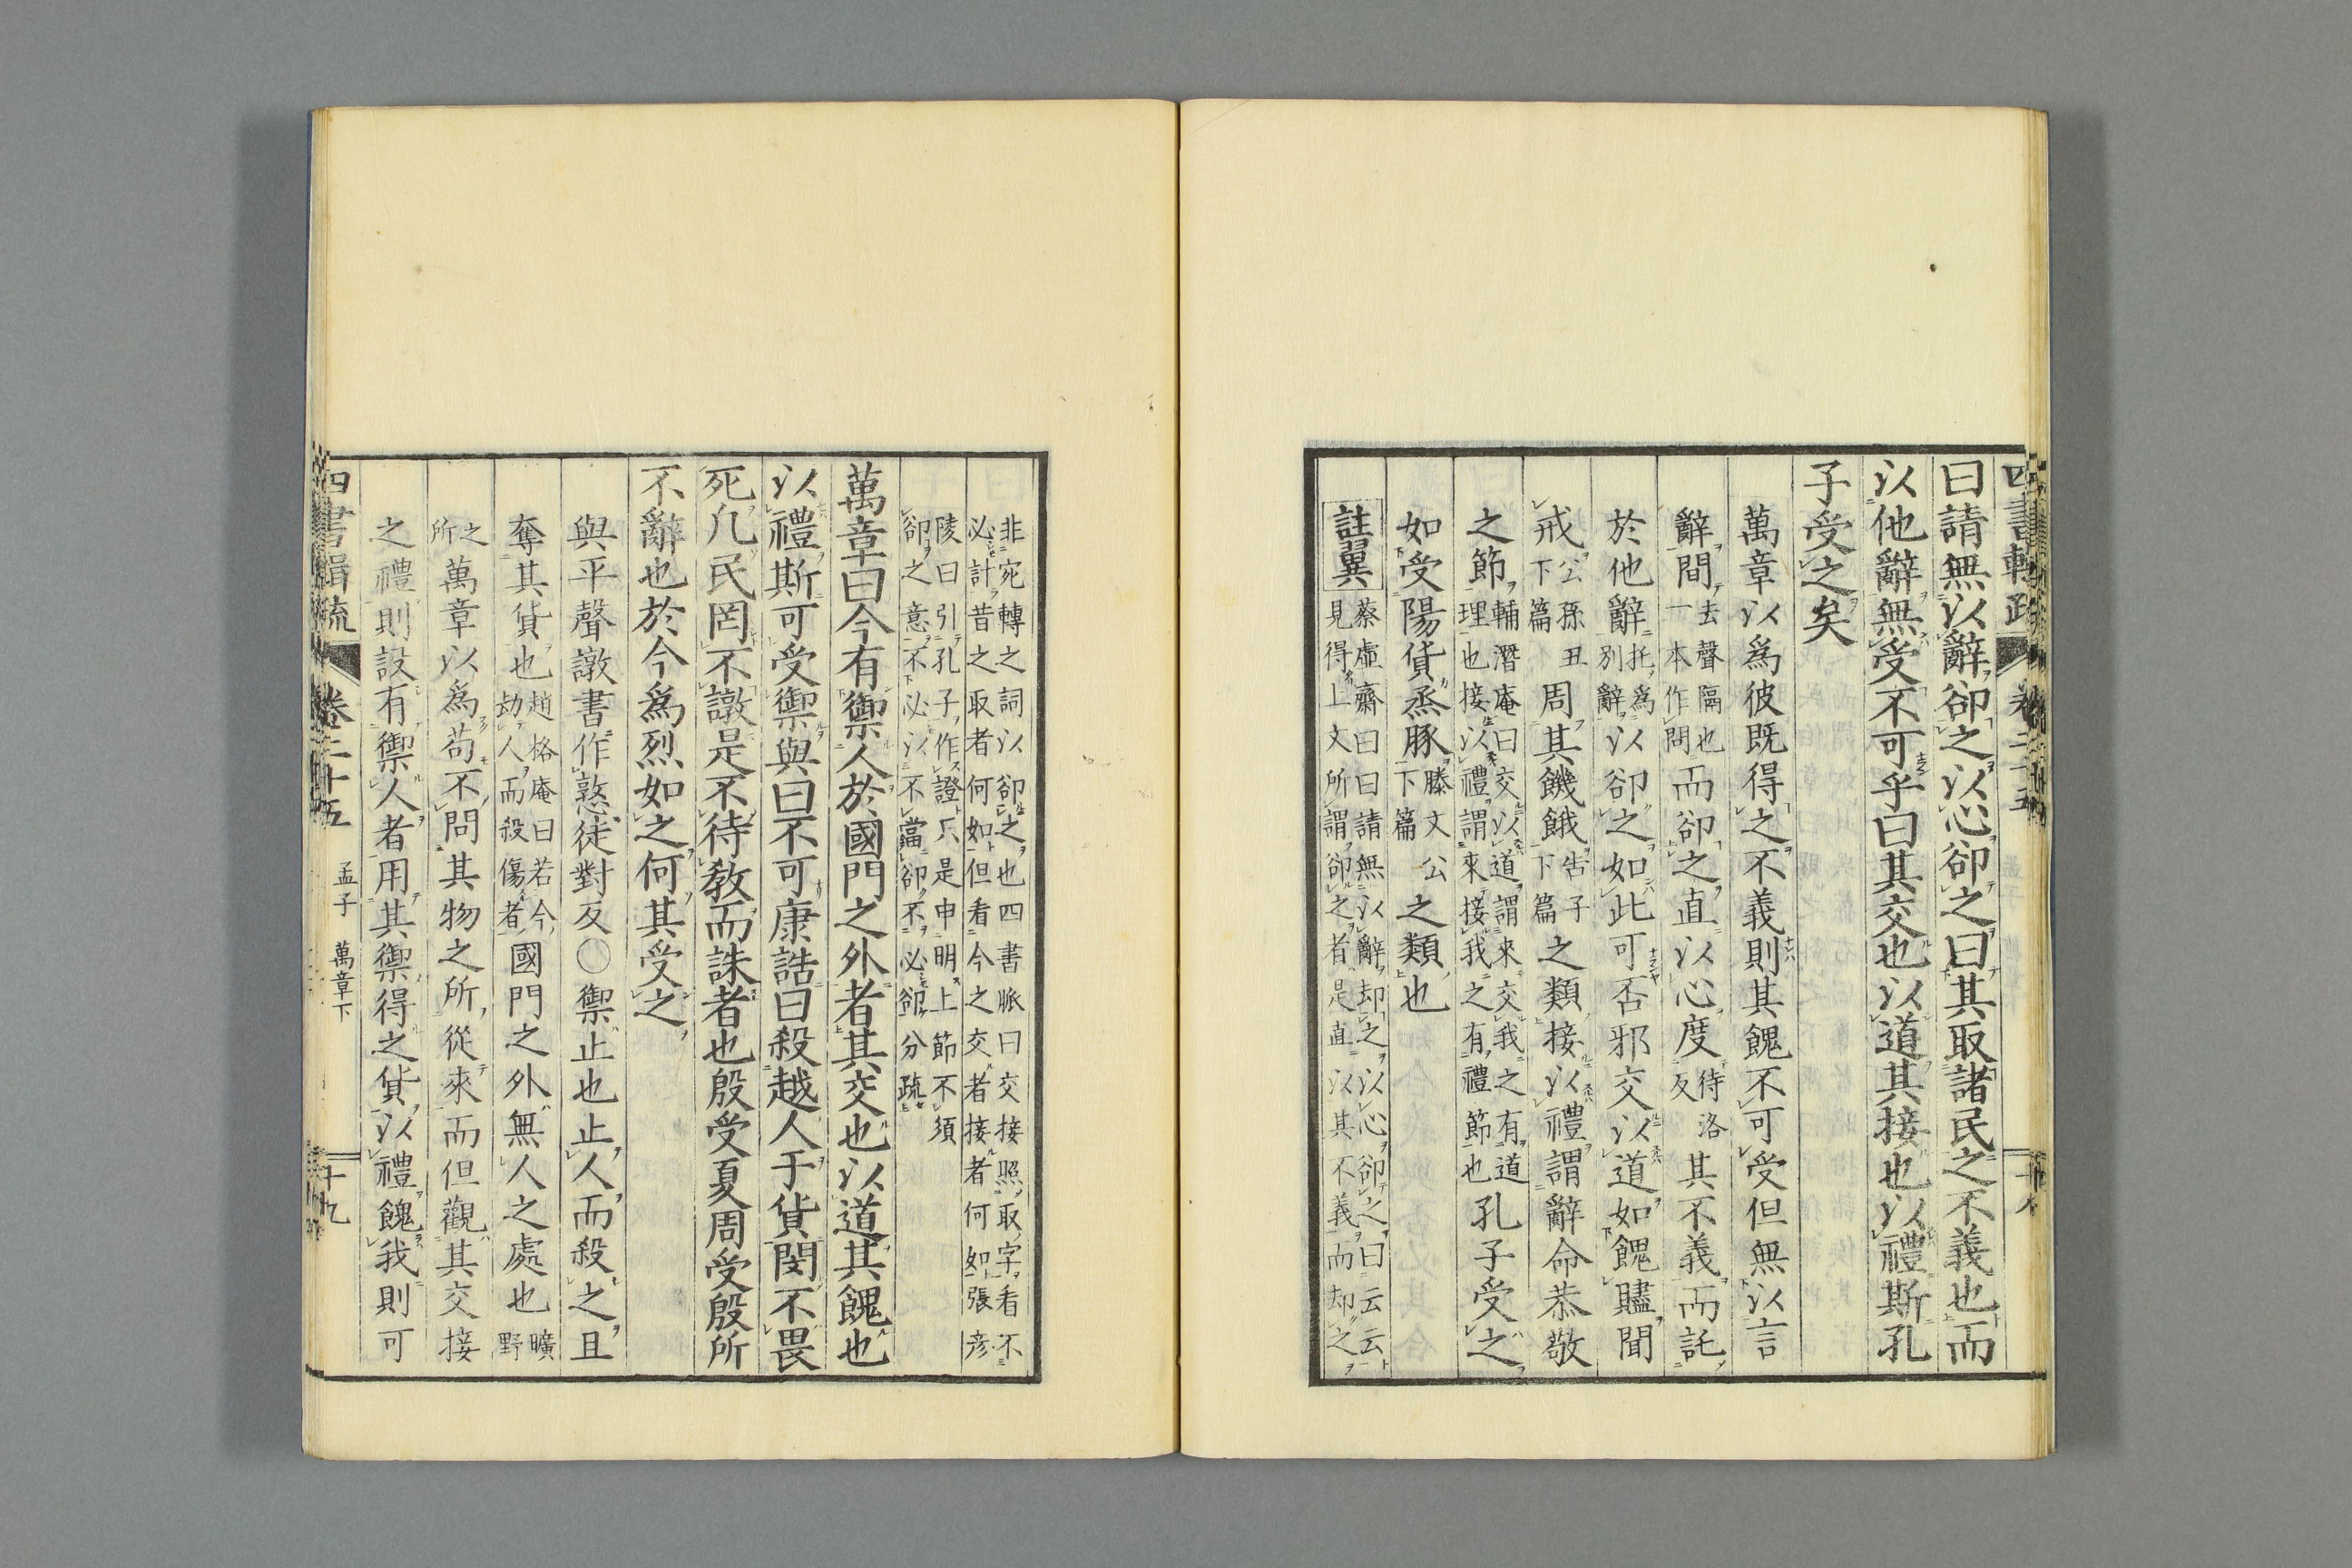 四書輯疏 卷二十五 十八
曰請無以辭卻之以心卻之曰其取諸民之不義也而
以他辭無受不可乎曰其交也以道其接也以禮斯孔
子受之矣
萬章以爲彼既得之不義則其餽不可受但無以言
辭間去聲隔也一本作問而卻之直以心度待洛反其不義而託
於他辭托爲別辭以卻之如此可否邪交以道如餽贐聞
戒公孫丑下篇周其饑餓告子下篇之類接以禮謂辭命恭敬
之節輔潛庵曰交以道謂來交我之有道理也接以禮謂來接我之有禮節也孔子受之
如受陽貨烝豚滕文公下篇之類也
註翼蔡虛齋曰曰請無以辭却之以心卻之曰云云見得上文所謂卻之者是直以其不義而却之
非宛轉之詞以卻之也四書脈曰交接照取字看不必計昔之取者何如但看今之交者接者何如張彥
陵曰引孔子作證只是申明上節不須卻之意不必以不當卻不必卻分疏
萬章曰今有禦人於國門之外者其交也以道其餽也
以禮斯可受禦與曰不可康誥曰殺越人于貨閔不畏
死凡民罔不譈是不待敎而誅者也殷受夏周受殷所
不辭也於今爲烈如之何其受之
與平聲譈書作憝徒對反○禦止也止人而殺之且
奪其貨也趙格庵曰若今劫人而殺傷者國門之外無人之處也曠野
之所萬章以爲苟不問其物之所從來而但觀其交接
之禮則設有禦人者用其禦得之貨以禮餽我則可
四書輯疏 卷二十五 孟子 萬章下 十九